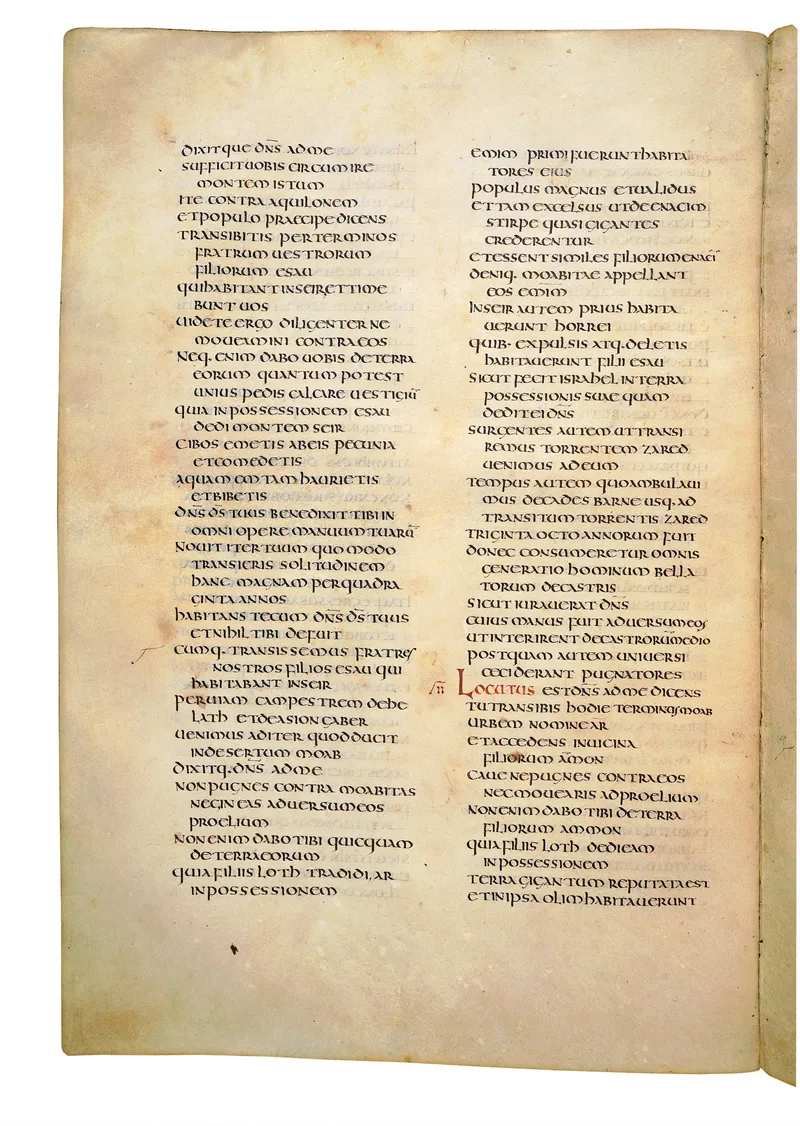 DIXITQUE DN̅S AD ME
SUFFICIT UOBIS CIRCUMIRE
MONTEM ISTUM
ITE CONTRA AQUILONEM
ET POPULO PRAECIPE DICENS
TRANSIBITIS PER TERMINOS
FRATRUM UESTRORUM
FILIORUM ESAU
QUI HABITANT IN SEIR ET TIME
BUNT UOS
UIDETE ERGO DILIGENTER NE
MOUEAMINI CONTRA EOS
NEQ· ENIM DABO UOBIS DE TERRA
EORUM QUANTUM POTEST
UNIUS PEDIS CALCARE UESTIGIŪ
QUIA IN POSSESSIONEM ESAU
DEDI MONTEM SEIR
CIBOS EMETIS AB EIS PECUNIA
ET COMEDETIS
AQUAM EMTAM HAURIETIS
ET BIBETIS
DN̅S DS̅ TUUS BENEDIXIT TIBI IN
OMNI OPERE MANUUM TUARŪ
NOUIT ITER TUUM QUOMODO
TRANSIERIS SOLITUDINEM
HANC MAGNAM PER QUADRA
GINTA ANNOS
HABITANS TECUM DN̅S DS̅ TUUS
ET NIHIL TIBI DEFUIT
CUMQ· TRANSISSEMUS FRATRES
NOSTROS FILIOS ESAU QUI
HABITABANT IN SEIR
PER UIAM CAMPESTREM DE HE
LATH ET DE ASIONGABER
UENIMUS AD ITER QUOD DUCIT
IN DESERTUM MOAB
DIXITQ· DN̅S AD ME
NON PUGNES CONTRA MOABITAS
NEC INEAS ADUERSUM EOS
PROELIUM
NON ENIM DABO TIBI QUICQUAM
DE TERRA EORUM
QUIA FILIIS LOTH TRADIDI, AR
IN POSSESSIONEM
EMIM PRIMI FUERUNT HABITA
TORES EIUS
POPULUS MAGNUS ET UALIDUS
ET TAM EXCELSUS UT DE ENACIM
STIRPE QUASI GIGANTES
CREDERENTUR
ET ESSENT SIMILES FILIORUM ENACĪ
DENIQ· MOABITAE APPELLANT
EOS EMIM
IN SEIR AUTEM PRIUS HABITA
UERUNT HORREI
QUIB· EXPULSIS ATQ· DELETIS
HABITAUERUNT FILII ESAU
SICUT FECIT ISRAHEL IN TERRA
POSSESSIONIS SUAE QUAM
DEDIT EI DN̅S
SURGENTES AUTEM UT TRANSI
REMUS TORRENTEM ZARED
UENIMUS AD EUM
TEMPUS AUTEM QUO AMBULAUI
MUS DE CADES BARNE USQ· AD
TRANSITUM TORRENTIS ZARED
TRIGINTA OCTO ANNORUM FUIT
DONEC CONSUMERETUR OMNIS
GENERATIO HOMINUM BELLA
TORUM DE CASTRIS
SICUT IURAUERAT DN̅S
CUIUS MANUS FUIT ADUERSUM EOS
UT INTERIRENT DE CASTRORUM MEDIO
POSTQUAM AUTEM UNIUERSI
CECIDERANT PUGNATORES
LOCUTUS EST DN̅S AD ME DICENS
TU TRANSIBIS HODIE TERMINOS MOAB
URBEM NOMINE AR
ET ACCEDENS IN UICINA
FILIORUM A̅MON
CAUE NE PUGNES CONTRA EOS
NEC MOUEARIS AD PROELIUM
NON ENIM DABO TIBI DE TERRA
FILIORUM AMMON
QUIA FILIIS LOTH DEDI EAM
IN POSSESSIONEM
TERRA GIGANTUM REPUTATA EST
ET IN IPSA OLIM HABITAUERUNT